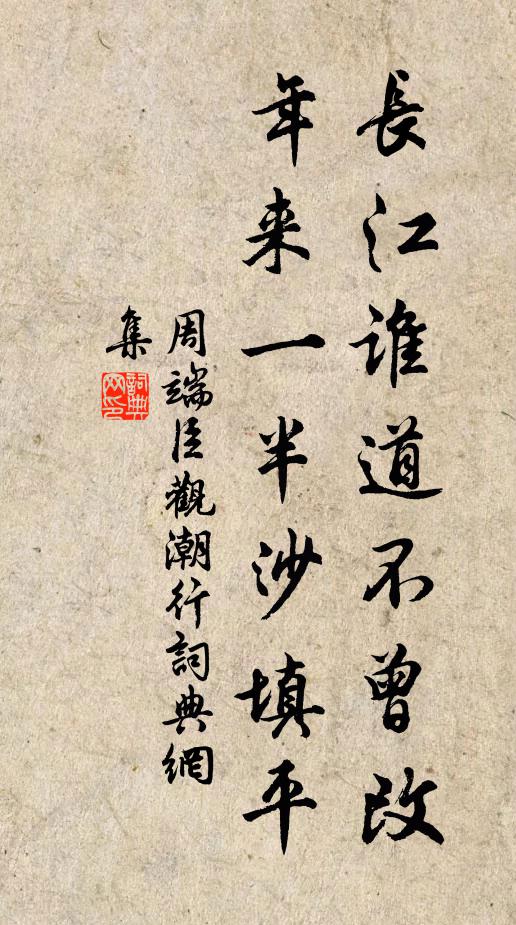 長江誰道不曾改
年来一半沙填平
周端臣觀潮行詞典網
集
詞典網印